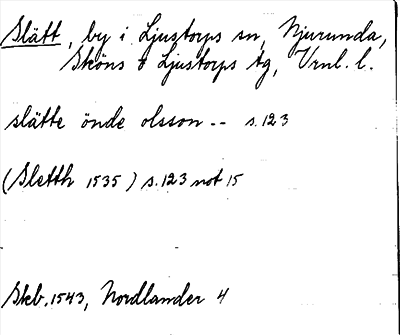 Slätt, by i Ljustorps sn, Njurunda,
Sköns o Ljustorps tg, Vrnl. l.
slätte önde olsson -- s. 123
(Sletth 1535) s. 123 not 15
Skb. 1543, Nordlander 4